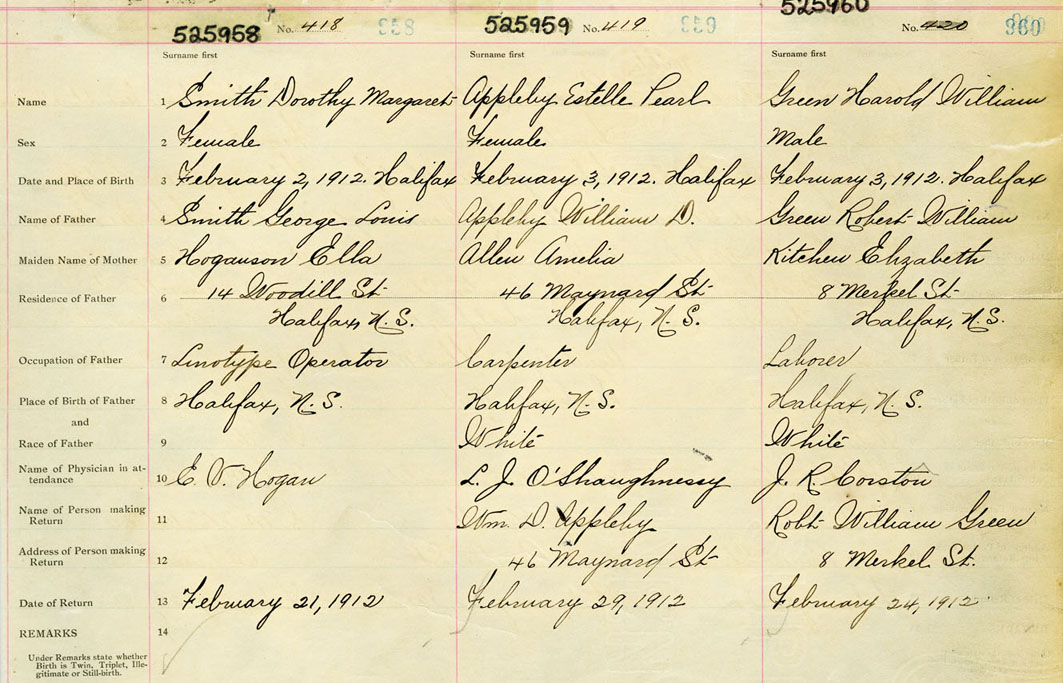 525958 No. 418 358 525959 No. 419 359 525960 No. 420 360
Surname first Surname first Surname first
Name 1 Smith Dorothy Margaret Appleby Estelle Pearl Green Harold William
Sex 2 Female Female Male
Date and Place of Birth 3 February 2, 1912. Halifax February 3, 1912. Halifax February 3, 1912. Halifax
Name of Father 4 Smith George Louis Appleby William D. Green Robert William
Maiden Name of Mother 5 Hoganson Ella Allen Amelia Kitchen Elizabeth
Residence of Father 6 14 Woodill St 46 Maynard St 8 Merkel St
Halifax, N.S. Halifax, N.S. Halifax, N.S.
Occupation of Father 7 Linotype Operator Carpenter Laborer
Place of Birth of Father 8 Halifax, N.S. Halifax, N.S. Halifax, N.S.
and
Race of Father 9 White White
Name of Physician in at-
tendance 10 E. V. Hogan L. J. O'Shaughnessy J. R. Corston
Name of Person making
Return 11 Wm. D. Appleby Robt William Green
Address of Person making
Return 12 46 Maynard St 8 Merkel St.
Date of Return 13 February 21, 1912 February 29, 1912 February 24, 1912
REMARKS 14
Under Remarks state whether
Birth is Twin, Triplet, Ille-
gitimate or Still-birth.